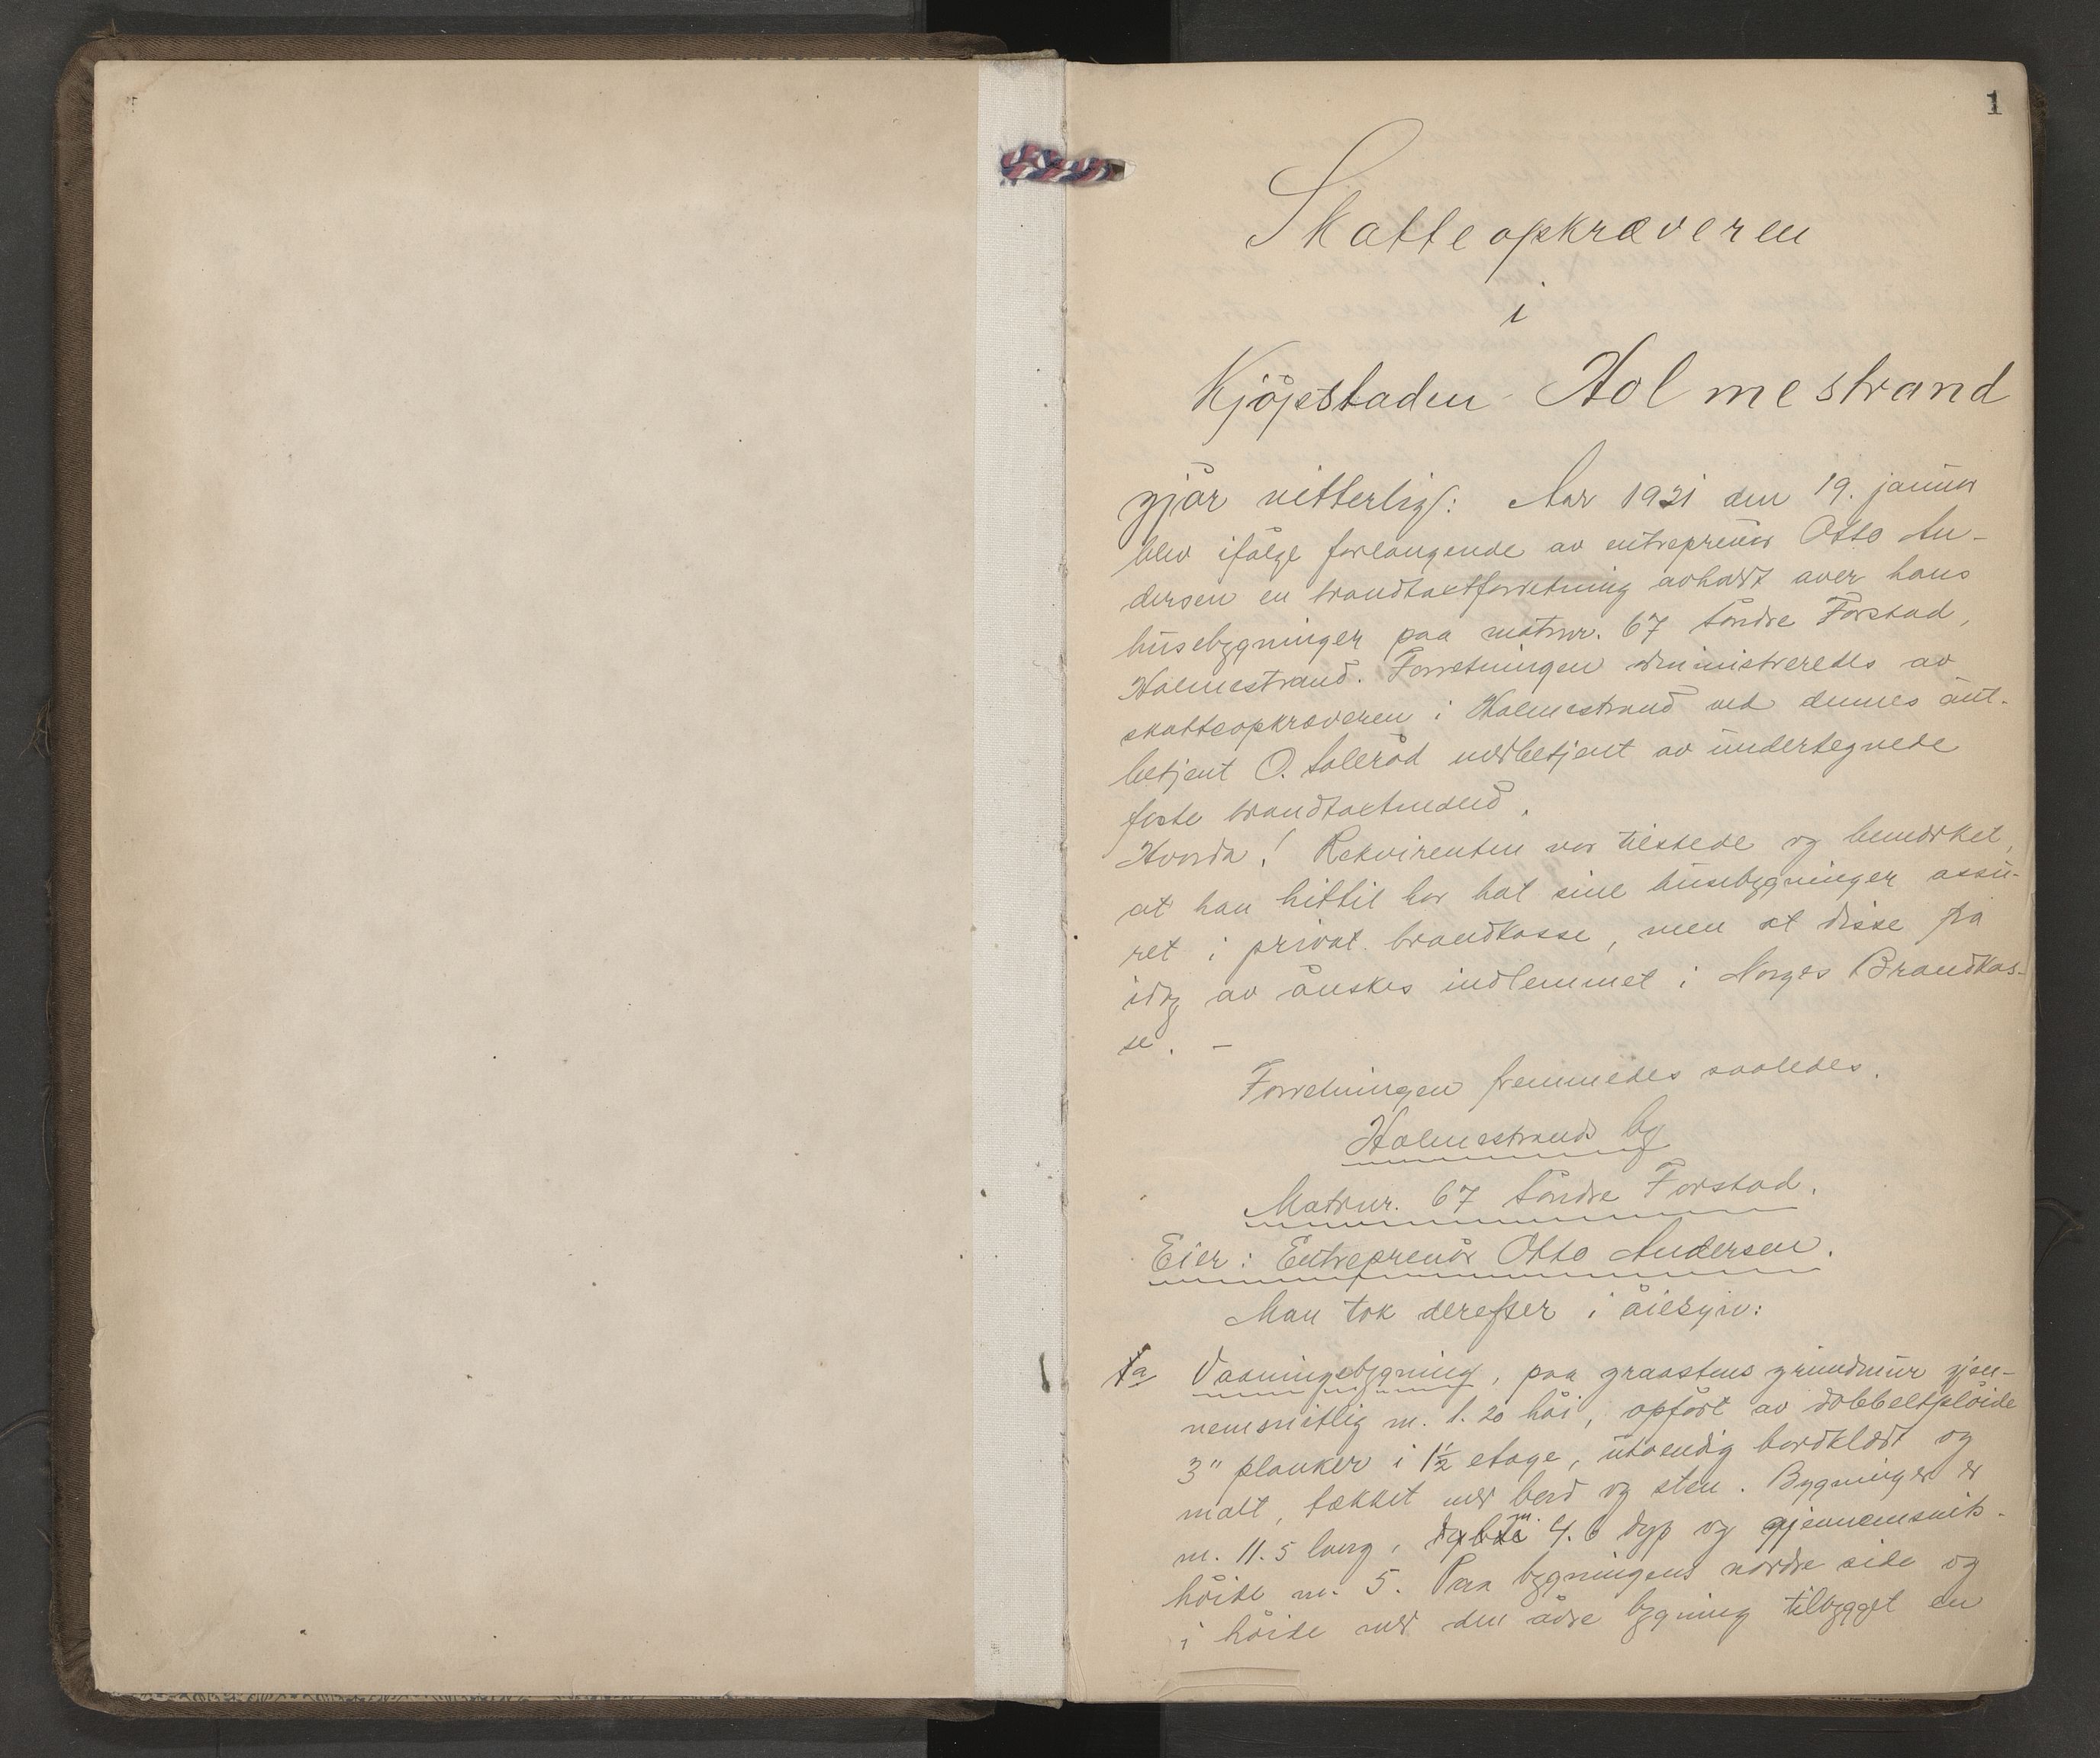 1
Skatteopkræveren
i
Kjøpstaden Holmestrand
gjør vitterligt: Aar 1921 den 19. januar
blev ifølge forlangende av entreprenør Otto An-
dersen en brandtaxtforretning avholdt over hans
husebygninger paa matrnr. 67 Søndre Forstad,
Holmestrand. Forretningen administreredes av
skatteopkræveren i Holmestrand ved dennes aut.
betjent O. Solerød medbetjent av undertegnede
faste brandtaxtmænd.
Hvorda! Rekvirenten var tilstede og bemærket,
at han hittil har hat sine husebygninger assu-
ret i privat brandkasse, men at disse fra
idag av ønskes indlemmet i Norges Brandkas-
se. –
Forretningen fremmedes saaledes.
Holmestrands by
Matrnr. 67 Søndre Forstad.
Eier: Entreprenør Otto Andersen.
Man tok derefter i øiesyn:
1a Vaaningsbygning, paa graastens grundmur gjen-
nemsnitlig m. 1.20 høi, opført av dobbeltpløide
3" planker i 1½ etage, utvendig bordklædt og
malt, tækket med bord og sten. Bygningen er
m. 11.5 lang, m. 4.6 dyp og gjennemsnits-
høide m. 5. Paa bygningens nordre side og
i høide med den øvre bygning tilbygget en